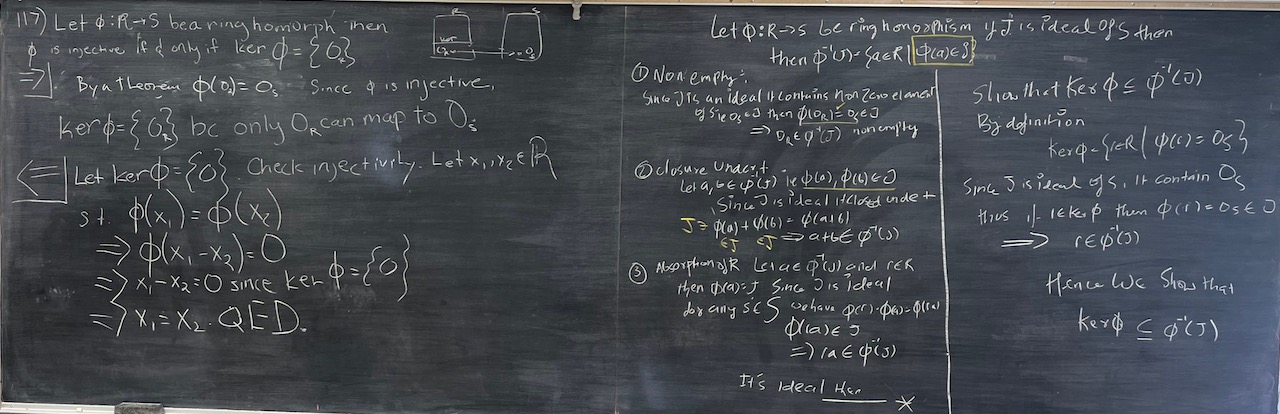 117) Let φ: R→S be a ring homorph then
φ is injective if & only if ker φ = {0_R}
⇒ By a theorem φ(0_R) = 0_S Since φ is injective,
ker φ = {0_R} bc only 0_R can map to 0_S
⇐ Let ker φ = {0}. Check injectivity. Let x₁, x₂ ∈ R
s.t. φ(x₁) = φ(x₂)
⇒ φ(x₁-x₂) = 0
⇒ x₁-x₂ = 0 since ker φ = {0}
⇒ x₁ = x₂. QED.
R S
ker
0_S
Let φ: R→S be ring homorphism if J is ideal of S then
then φ⁻¹(J) = {a∈R | φ(a)∈J}
① Non empty:
Since J is an ideal it contains non zero element
of S ie 0_S∈J then φ(0_R) = 0_S∈J
⇒ 0_R∈φ⁻¹(J) non empty
② closure
Let a, b ∈ φ⁻¹(J) ie φ(a), φ(b) ∈ J
Since J is ideal it closed under +
J ∋ φ(a) + φ(b) = φ(a+b)
∈J ∈J ⇒ a+b ∈ φ⁻¹(J)
③ Absorption of R Let a∈φ⁻¹(J) and r∈R
then φ(a)∈J Since J is ideal
for any s∈S we have φ(r)·φ(a) = φ(ra)
φ(ra) ∈ J
⇒ ra ∈ φ⁻¹(J)
It's ideal
Show that Ker φ ⊆ φ⁻¹(J)
By definition
Ker φ = {r∈R | φ(r) = 0_S}
Since J is ideal of S, it contain 0_S
thus if r∈ker φ then φ(r) = 0_S ∈ J
⇒ r∈φ⁻¹(J)
Hence We Show that
ker φ ⊆ φ⁻¹(J)